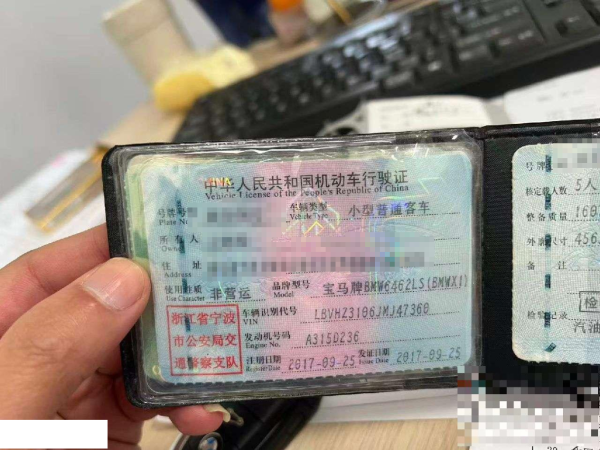 中华人民共和国机动车行驶证
Vehicle License of the People's Republic of China
号牌号 车辆类型 小型普通客车
Plate N Vehicle Type
所有人
Owner
住址
Address
使用性质 非营运 品牌型号 宝马牌BMW6462LS(BMWX1)
Use Character Model
浙江省宁波
市公安局交
通警察支队
车辆识别代号 LBVHZ3106JMJ47360
VIN
发动机号码 A315D236
Engine No.
注册日期 2017-09-25 发证日期 2017-09-25
Register Date Issue Date
号牌
核定载人数 5人
整备质量
外廓尺寸
备注
检验记录
汽油